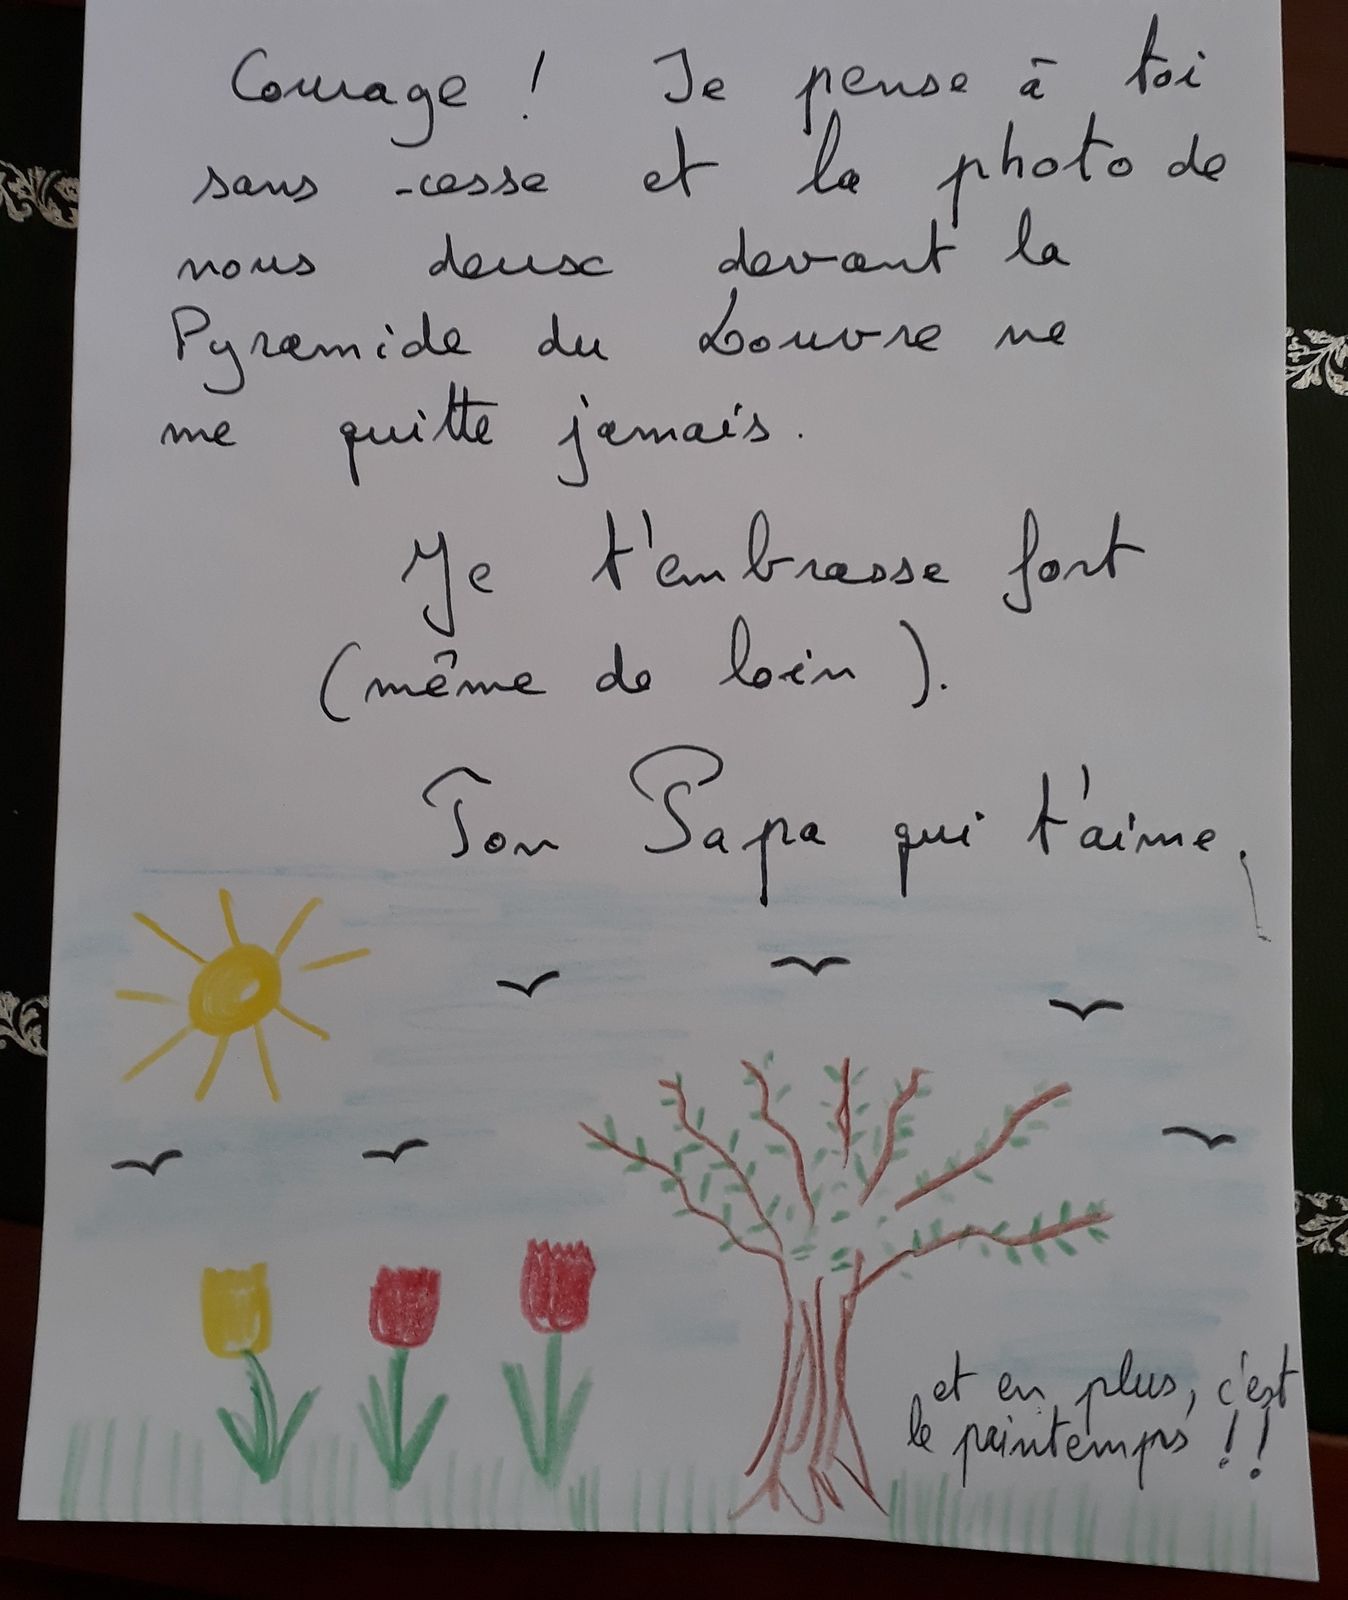 Courage ! Je pense à toi
sans -cesse et la photo de
nous deux devant la
Pyramide du Louvre ne
me quitte jamais.
Je t'embrasse fort
(même de loin ).
Ton Papa qui t'aime.
et en plus, c'est
le printemps !!